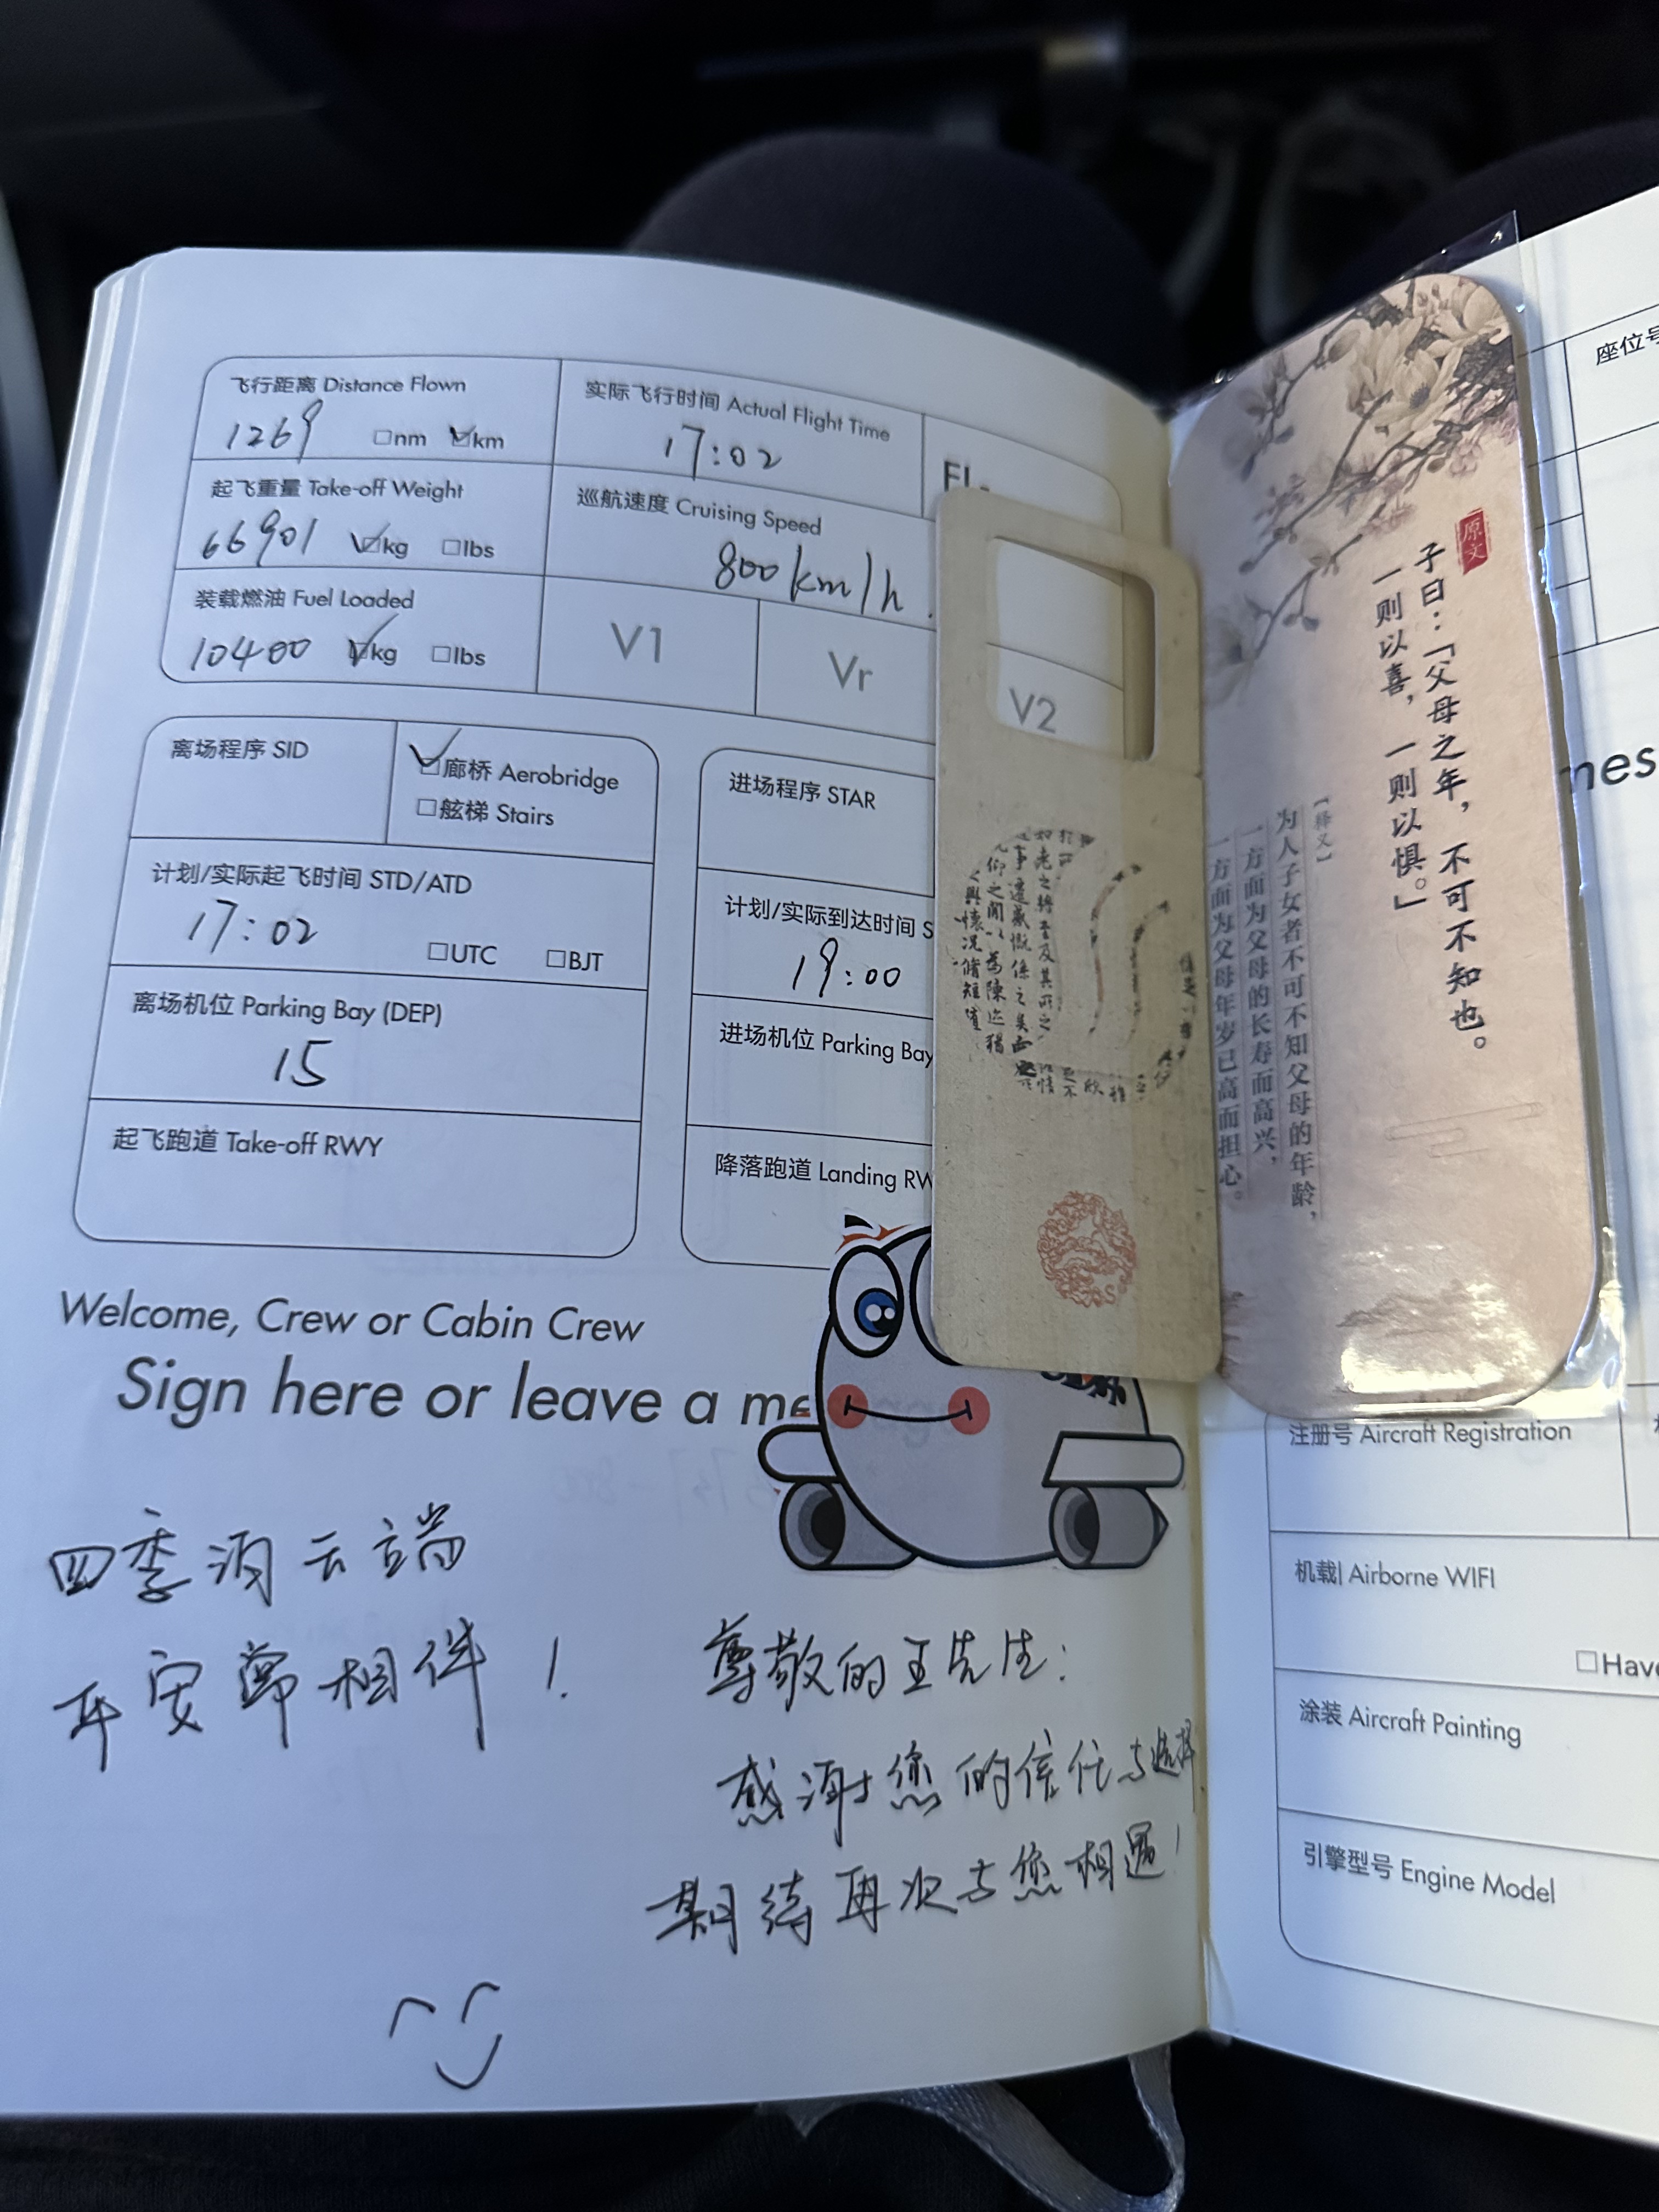 飞行距离 Distance Flown
1269 □nm ☑km
实际飞行时间 Actual Flight Time
17:02
FL-
起飞重量 Take-off Weight
66901 ☑kg □lbs
巡航速度 Cruising Speed
800km/h.
装载燃油 Fuel Loaded
10400 ☑kg □lbs
V1
Vr
V2
离场程序 SID
☑廊桥 Aerobridge
□舷梯 Stairs
计划/实际起飞时间 STD/ATD
17:02 □UTC □BJT
离场机位 Parking Bay (DEP)
15
起飞跑道 Take-off RWY
进场程序 STAR
计划/实际到达时间 S
19:00
进场机位 Parking Bay
降落跑道 Landing RW
Welcome, Crew or Cabin Crew
Sign here or leave a me
四季泊云端
平安常相伴!
尊敬的王先生:
感谢您的信任与选择
期待再次与您相遇!
原文
子曰:「父母之年,不可不知也。
一则以喜,一则以惧。」
【释义】
为人子女者不可不知父母的年龄,
一方面为父母的长寿而高兴,
一方面为父母年岁已高而担心。
座位号
mes
注册号 Aircraft Registration
机载 Airborne WIFI
□Have
涂装 Aircraft Painting
引擎型号 Engine Model